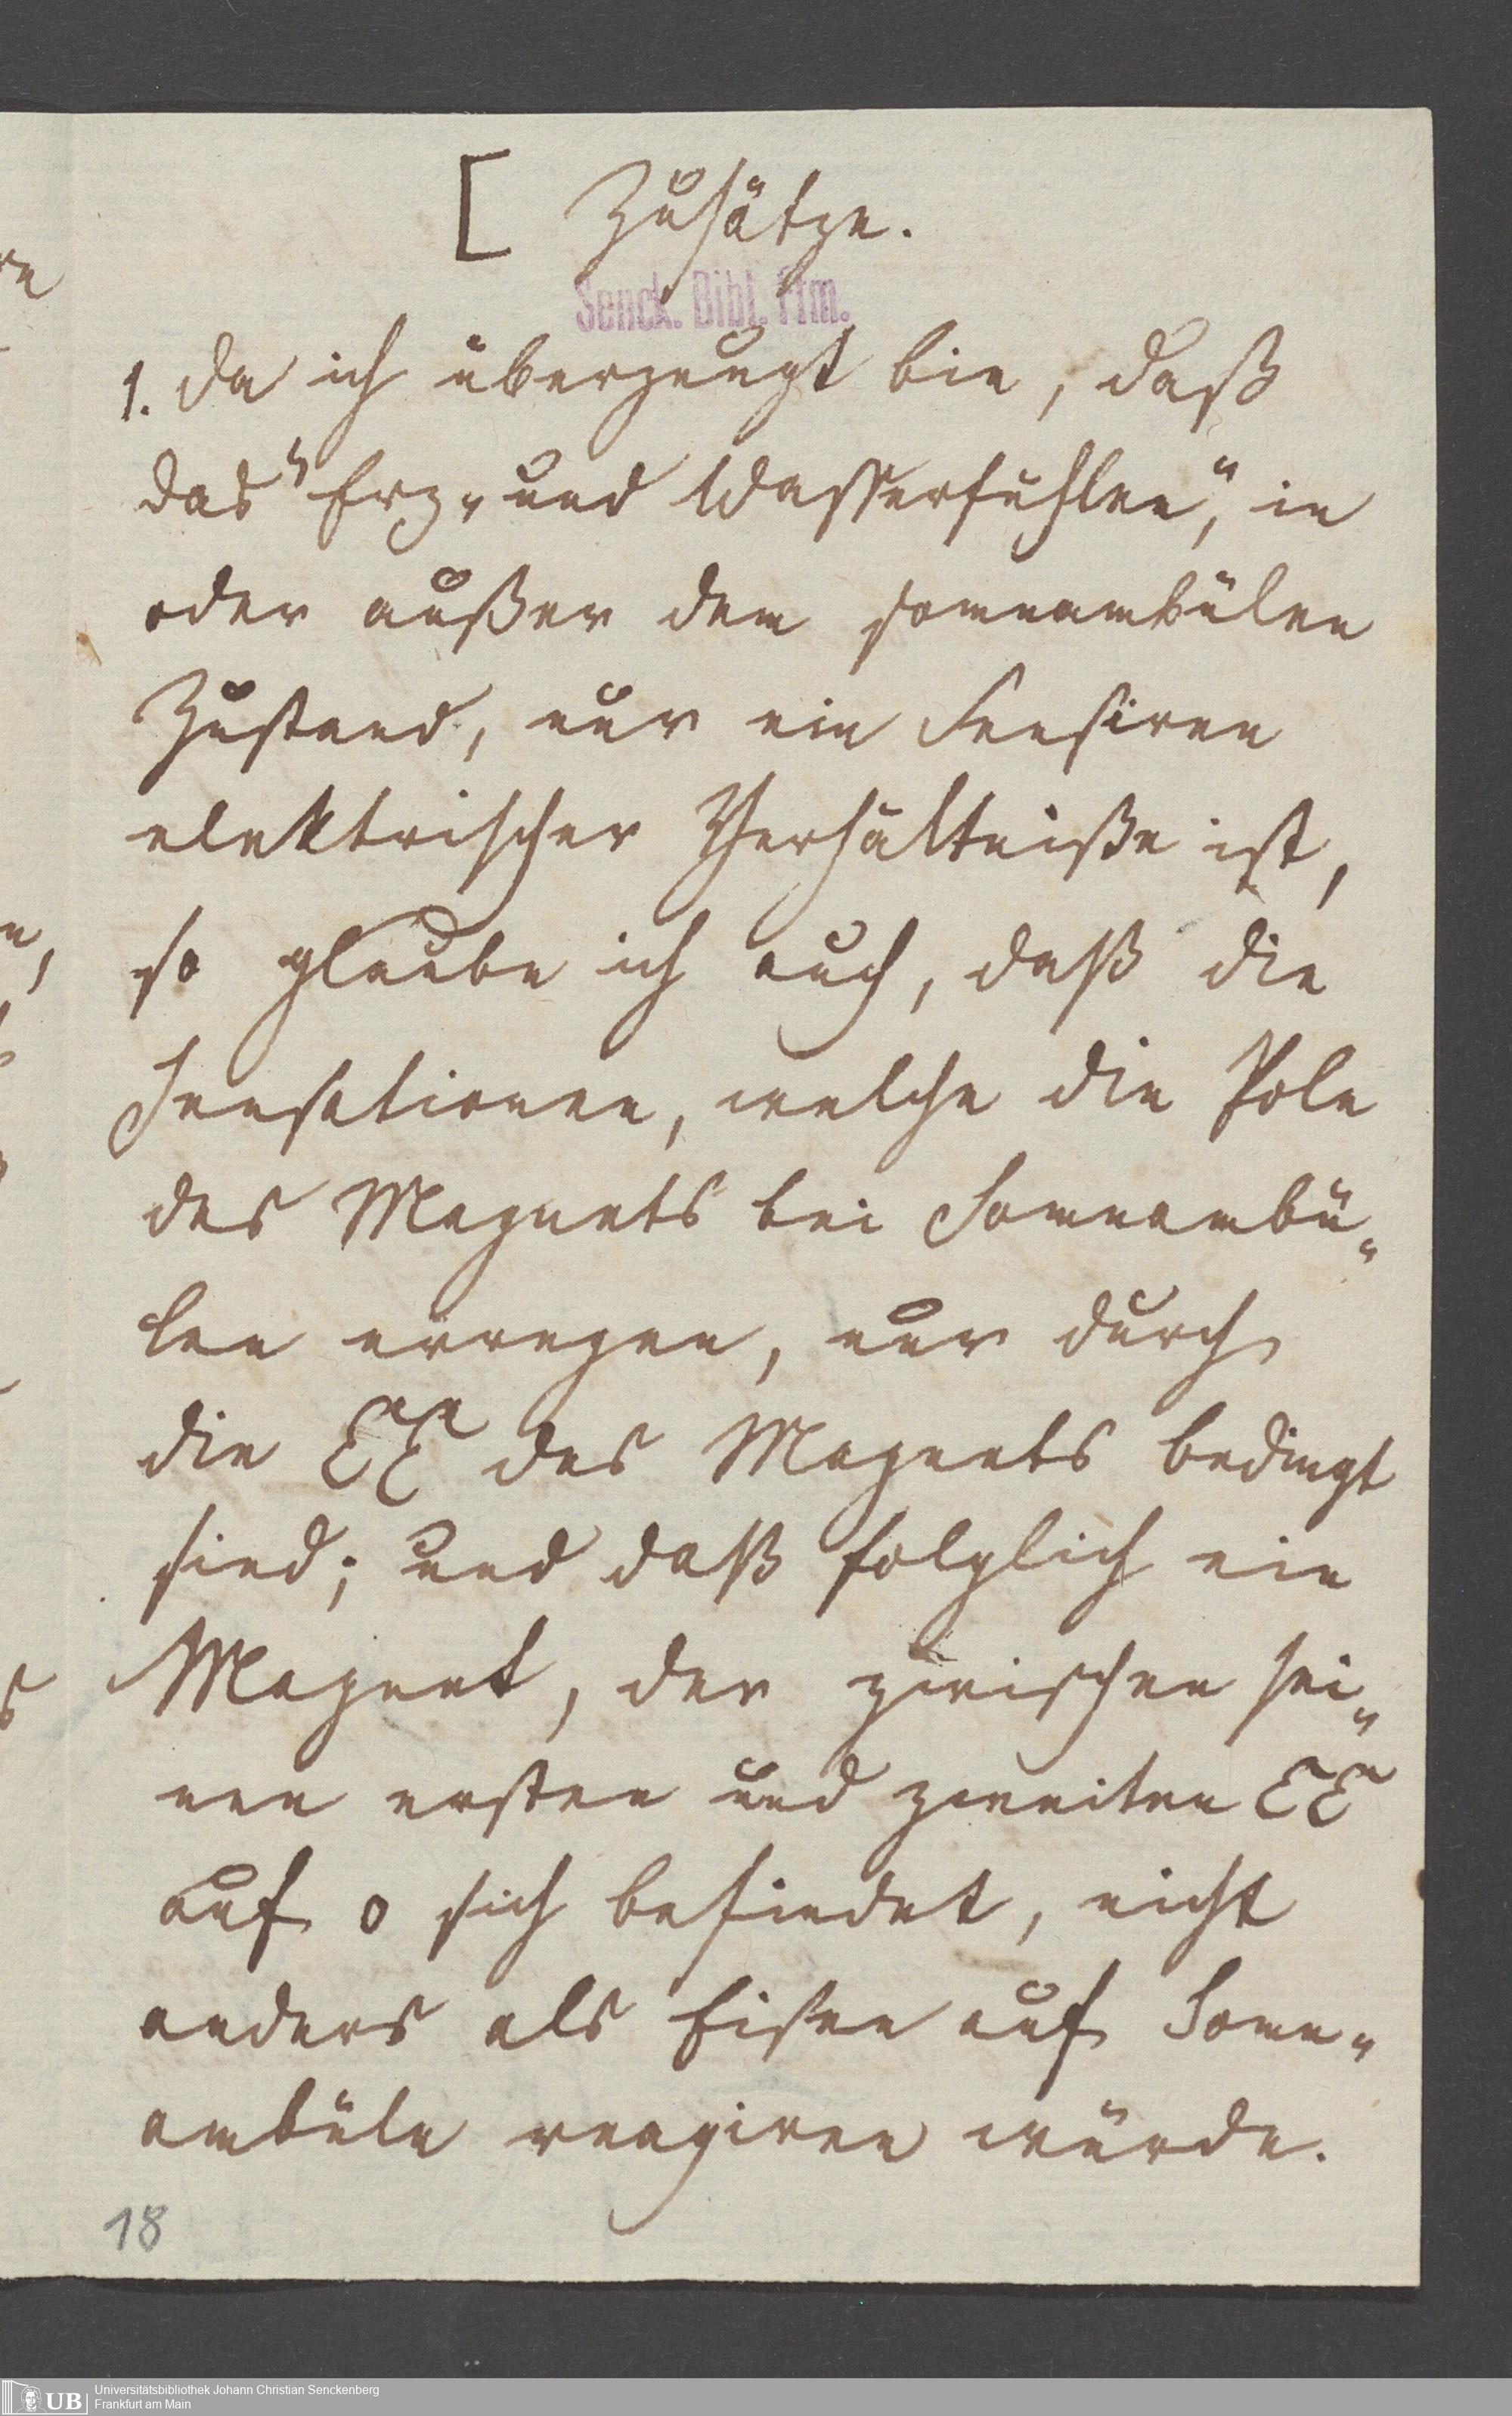 [ Zusätze.
Senck. Bibl. Ffm.
1. Da ich überzeugt bin, daß
das "Erz- und Wasserfühlen", in
oder außer dem somnambülen
Zustand, nur ein Sensiren
elektrischer Verhältniße ist,
so glaube ich auch, daß die
Sensationen, welche die Pole
des Magnets bei Somnambü-
len erregen, nur durch
die EE des Magnets bedingt
sind; und daß folglich ein
Magnet, der zwischen sei-
nen ersten und zweiten EE
auf 0 sich befindet, nicht
anders als Eisen auf Somn-
ambüle reagiren würde.
18
UB
Universitätsbibliothek Johann Christian Senckenberg
Frankfurt am Main